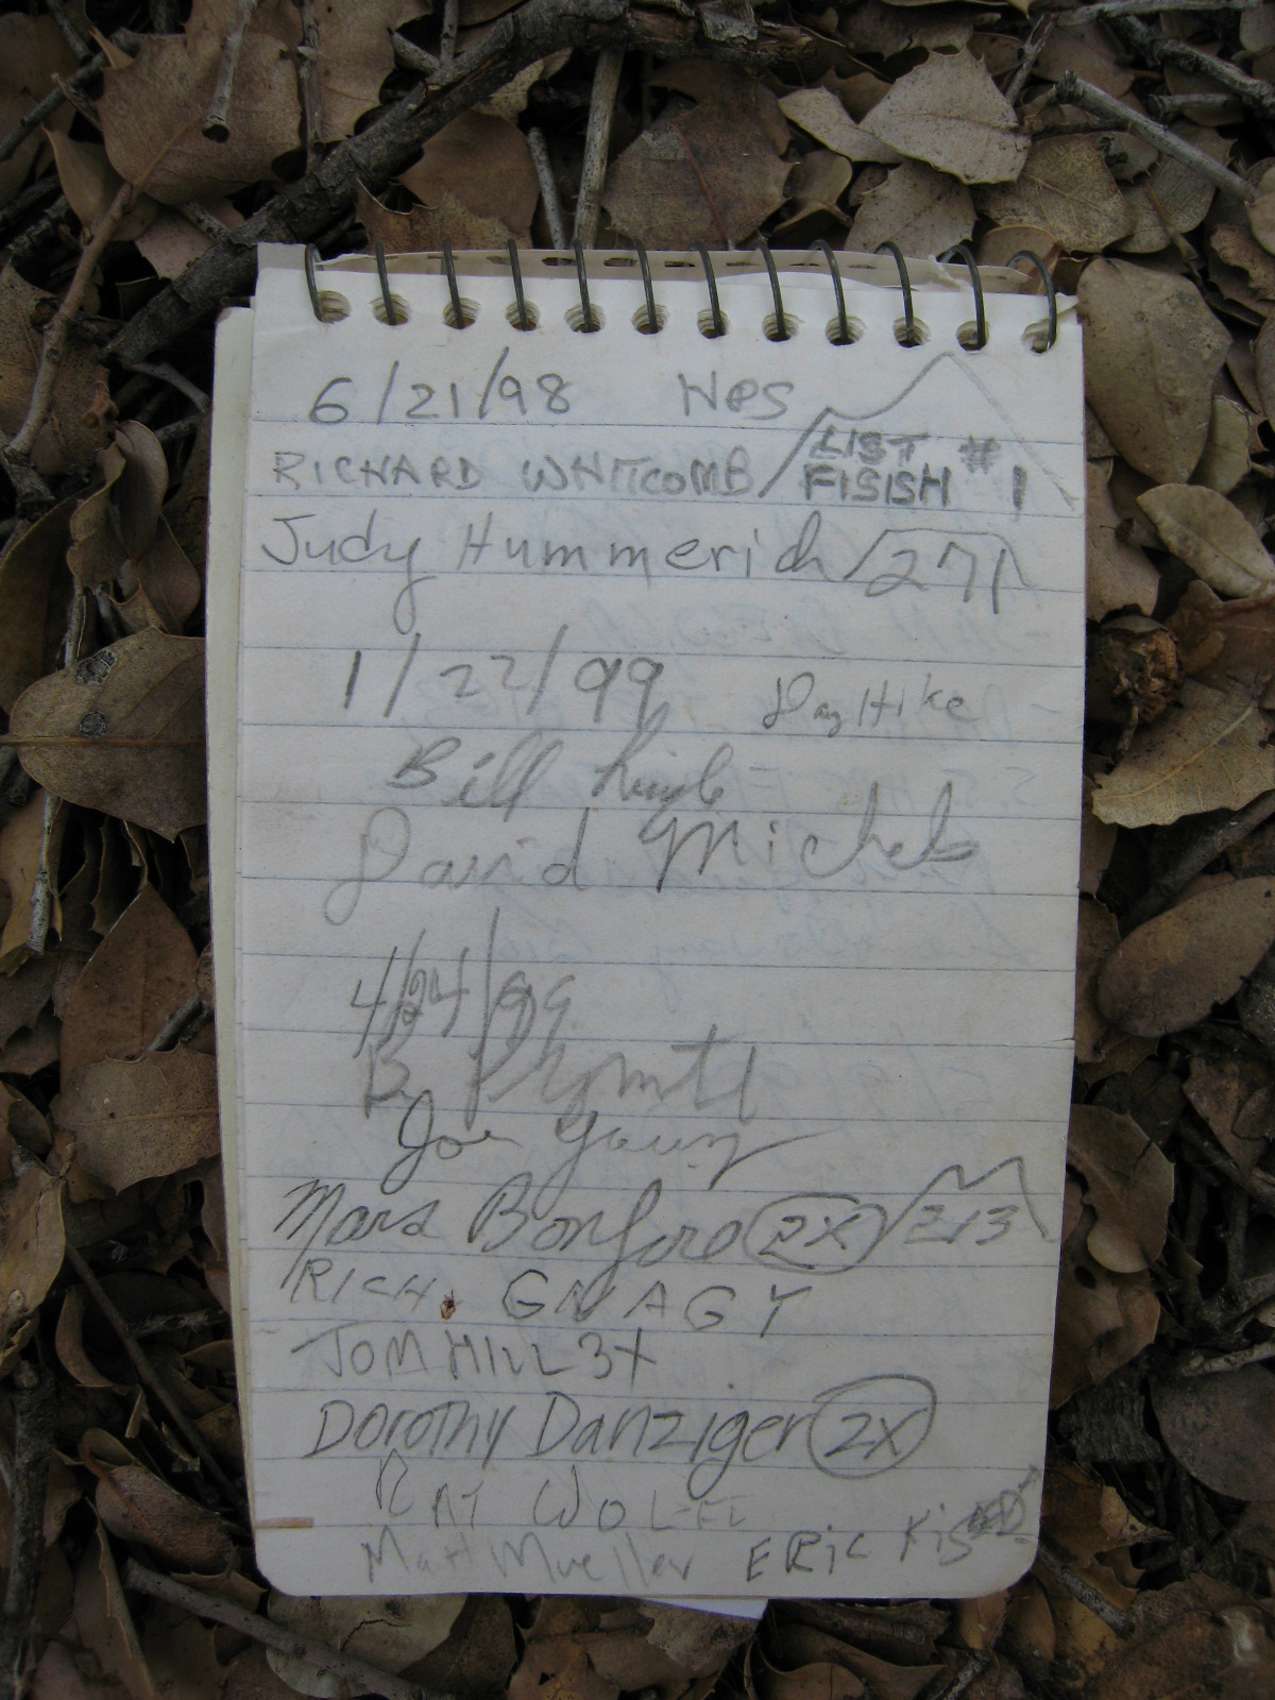 6/21/98 HPS
RICHARD WHITCOMB LIST # 1
FISISH
Judy Hummerich 271
1/22/99 Day Hike
Bill
David Michels
4/24/99
B.
Joe Young
Mars Bonfire 2X 213
RICH. GNAGY
TOM HILL 3X
Dorothy Danziger 2X
RAY WOLFE
Matt Mueller ERiC